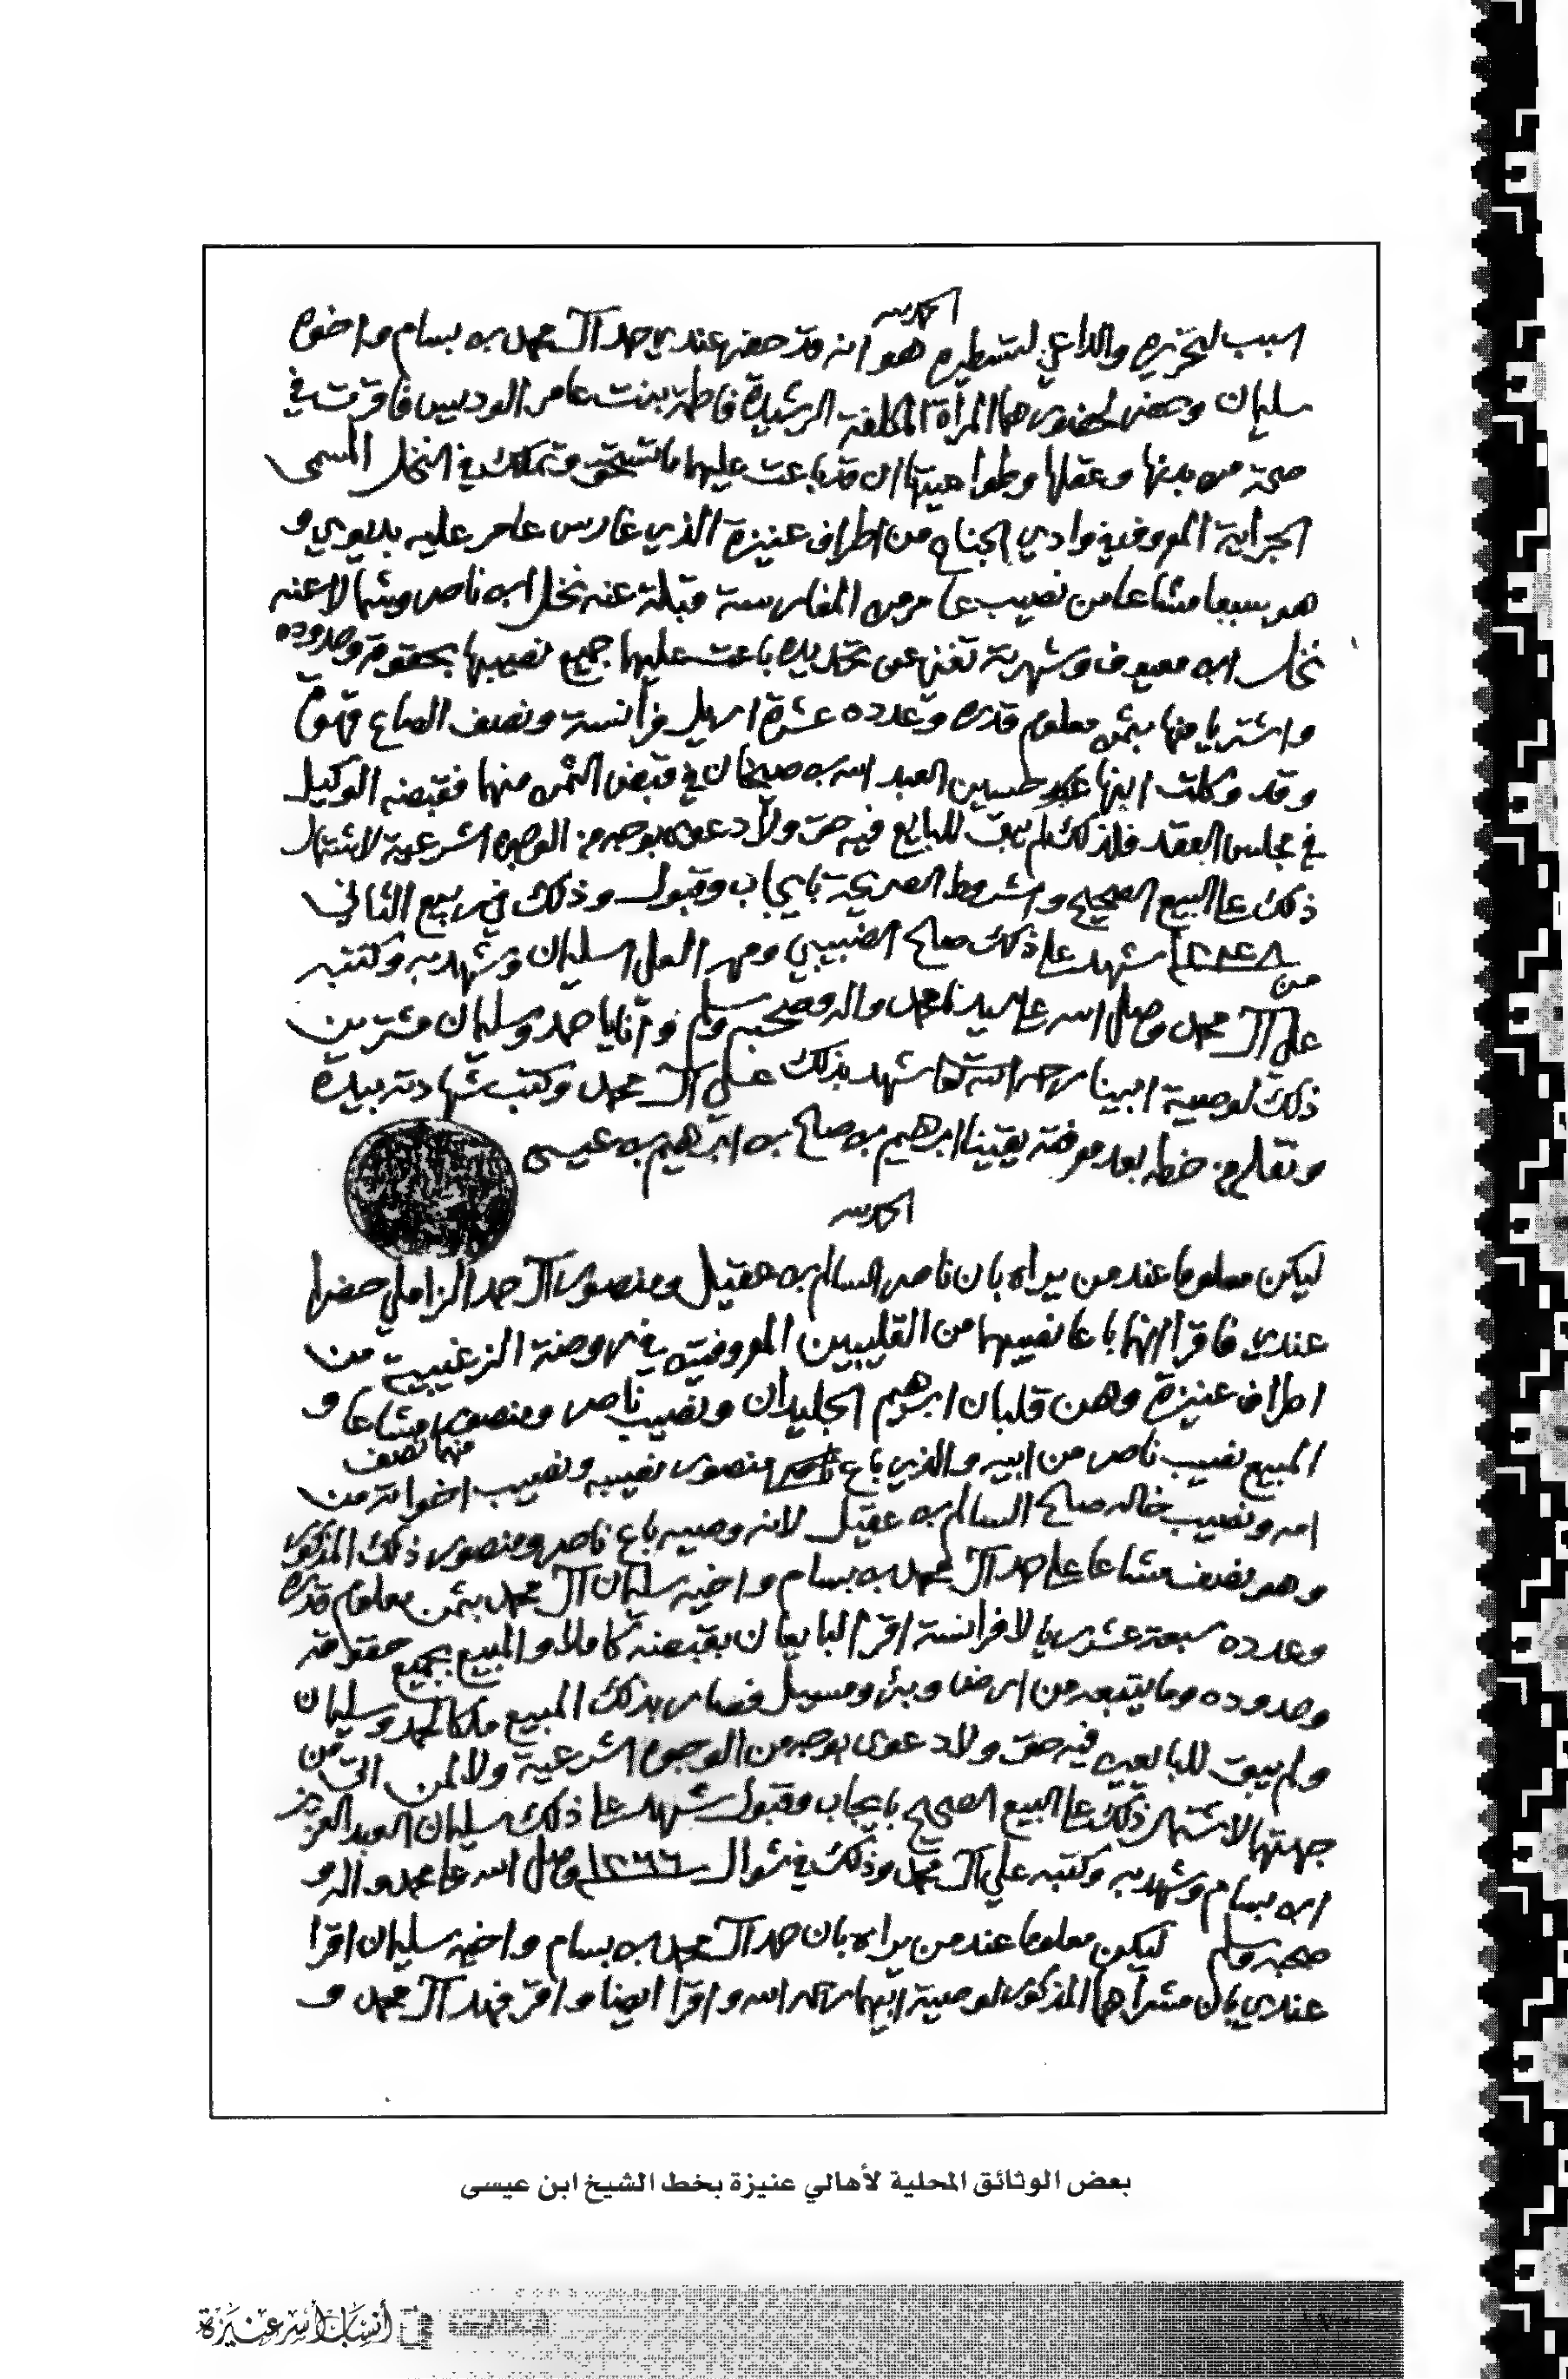 الحمد لله
السبب لتحريره والداعي لتسطيره هو انه قد حضر عندي حمد آل محمد بن بسام واخوه
سليمان وحضر لحضورهما المرأة المكلفة الرشيدة فاطمة بنت عامر الوديس فاقرت في
صحة من بدنها وعقلها وطواعيتها ان قد باعت عليهما ما تستحق وتملك في النخل المسمى
المعروف في وادي الجناح من اطراف عنيزة الذي غارس عامر عليه و
هو مشاعا من نصيب عامر من المغارسة قبلة عنه نخل ابن ناصر وشمالا عنه
نخل ابن وشهرته تغني عن تحديده باعت عليهما جميع نصيبها بحقوقه وحدوده
واشتريا منها بثمن معلوم قدره وعدده عشرة اريل فرانسة ونصف الصاع قهوة
وقد وكلت ابنها حسين العبد الله بن في قبض الثمن منها فقبضه الوكيل
في مجلس العقد فلذلك لم يبق للبايع فيه حق ولا دعوى بوجه من الوجوه الشرعية لاشتمال
ذلك على البيع الصحيح والشروط الصريحة بايجاب وقبول وذلك في ربيع الثاني
من ١٢٤٨ شهد على ذلك صالح ومهر العلي السليمان وشهد به وكتبه
علي آل محمد وصلى الله على سيدنا محمد واله وصحبه وسلم واقانا يا حمد وسليمان مشترين
ذلك لوصية ابينا رحمه الله تعالى شهد بذلك علي آل محمد وكتب شهادته بيده
ونقله من خطه بعد معرفته يقينا ابراهيم بن صالح بن ابراهيم بن عيسى
الحمد لله
ليكن معلوما عند من يراه بان ناصر السالم بن عقيل ومنصور آل حمد الزاملي حضرا
عندي فاقرا انهما باعا نصيبهما من القليبين المعروفتين في روضة الزغيبية من
اطراف عنيزة وهن قلبان ابراهيم الجليدان ونصيب ناصر ومنصور مشاعا و
المبيع نصيب ناصر من ابيه والذي باع منصور نصيبه ونصيب اخواته من
منهما نصف
امه ونصيب خاله صالح السالم بن عقيل لانه وصيه باع ناصر ومنصور ذلك المذكور
وهو نصف مشاعا على حمد آل محمد بن بسام واخيه سليمان آل محمد بثمن معلوم قدره
وعدده سبعة عشر ريالا فرانسة اقرا البايعان بقبضه كاملا والمبيع بجميع حقوقه
وحدوده وما يتبعه من ارض وبئر ومسيل فصار بذلك المبيع ملكا لحمد وسليمان
ولم يبق للبايعين فيه حق ولا دعوى بوجه من الوجوه الشرعية ولا لمن اتى من
جهتهما لاشتمال ذلك على البيع الصحيح بايجاب وقبول شهد على ذلك سليمان العبد العزيز
ابن بسام وشهد به وكتبه علي آل محمد وذلك في شوال ١٢٦٦ وصلى الله على محمد واله و
صحبه وسلم ليكن معلوما عند من يراه بان حمد آل محمد بن بسام واخيه سليمان اقرا
عندي بان مشراهما المذكور لوصية ابيهما رحمه الله واقرا ايضا واقر فهد آل محمد و
بعض الوثائق المحلية لأهالي عنيزة بخط الشيخ ابن عيسى
أنساب أسر عنيزة